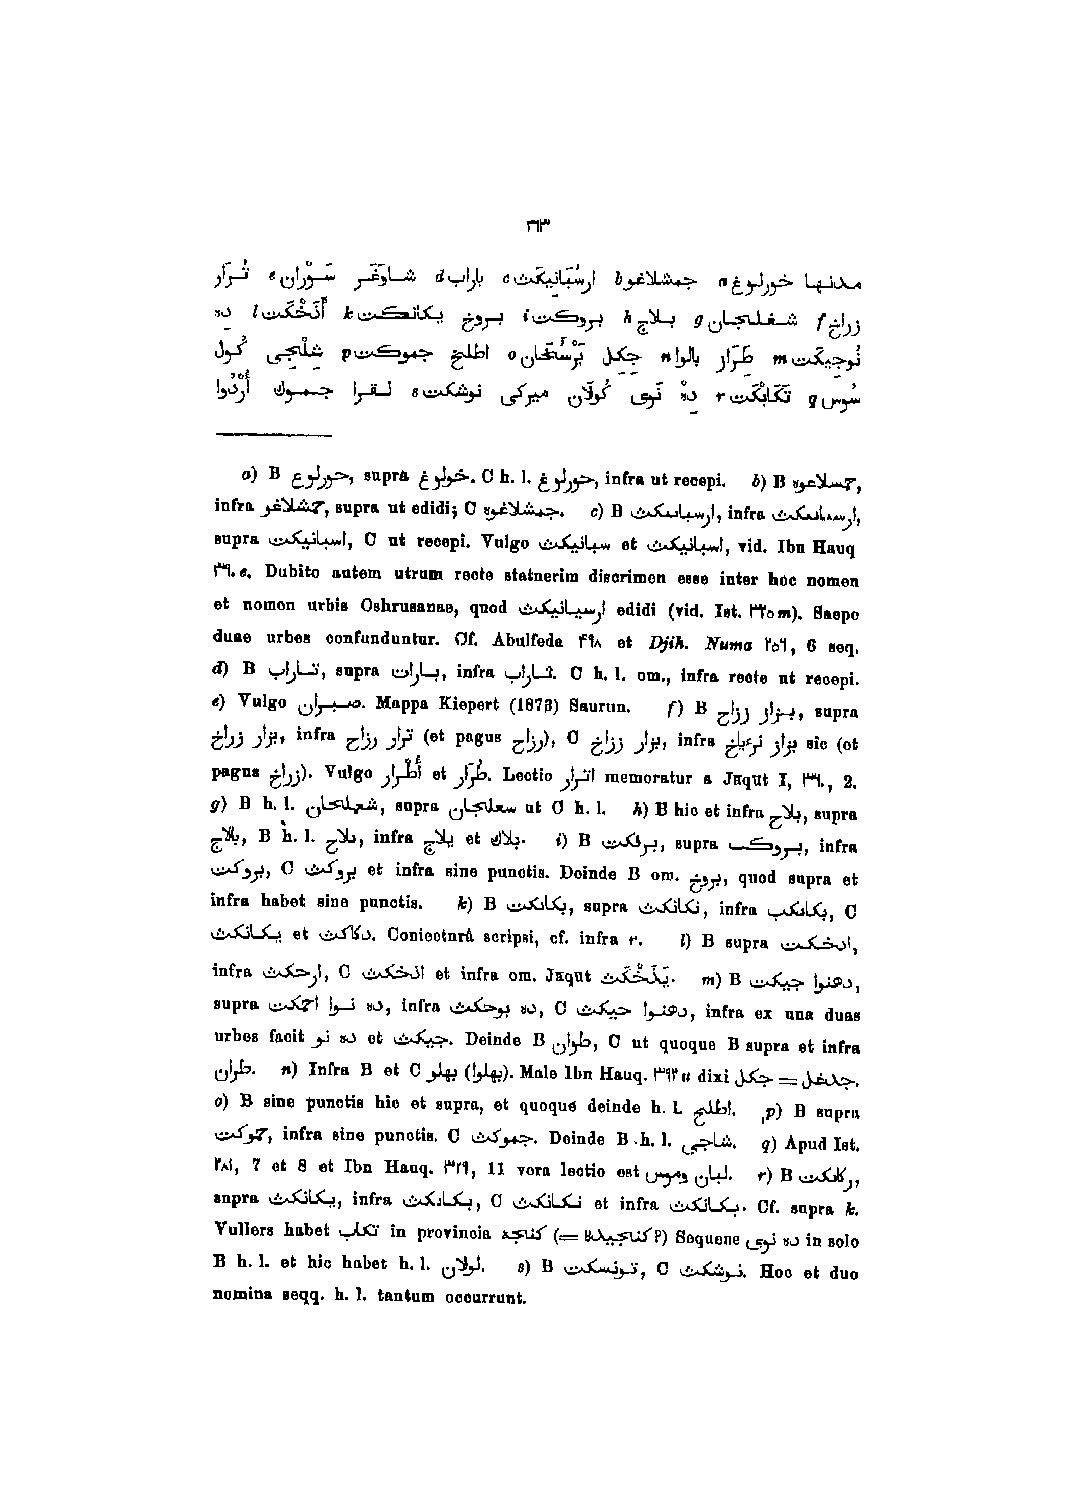 ٢٦٣
مدنها خورلوغ a جمشلاغو b ارسُبَانِيكَث c باراب d شاوَغَر سَوْران e تُرَار
زراخ f شغلجان g بلاج h بروكت i بروخ يكانكث k أَذَخْكَت l ده
نُوجِيكَث m طَرَاز بالوا n جِكِل بَرْسُخَان o اطلخ جموكت p شَلْجِى كُول
سُوس q تَكَابْكَث r دِه نَوِى كُولَان ميركى نوشكت s لقرا جموك أُرْدُوا
a) B حورلوع, supra خولوغ. C h. l. حورلوغ, infra ut recepi. b) B حسلاعوه,
infra جشلاغو, supra ut edidi; C جمشلاغوه. c) B ارسباسكث, infra ارسسانيكث,
supra اسبانيكث, C ut recepi. Vulgo سبانيكث et اسبانيكث, vid. Ibn Hauq
٣٩.e. Dubito autem utrum recte statuerim discrimen esse inter hoc nomen
et nomen urbis Oshrusanae, quod ارسيانيكث edidi (vid. Ist. ٣٢٥m). Saepe
duae urbes confunduntur. Cf. Abulfeda ٤٩٨ et Djih. Numa ٣٥٩, 6 seq.
d) B تاراب, supra بارات, infra فاراب. C h. l. om., infra recte ut recepi.
e) Vulgo صبران. Mappa Kiepert (1873) Saurun. f) B بزار زراح, supra
بزار زراخ, infra ترار رزاح (et pagus رزاح), C بزار زراخ, infra sic (et
pagus زراخ). Vulgo أُطْرار et طُرار. Lectio اترار memoratur a Jaqut I, ٣١٠, 2.
g) B h. l. شعلجان, supra سعلجان ut C h. l. h) B hic et infra بلاح, supra
يلاج, B h. l. بلاح, infra يلاج et بلاك. i) B برفكت, supra بروكب, infra
بروكت, C بروكث et infra sine punctis. Deinde B om. بروخ, quod supra et
infra habet sine punctis. k) B بكانكث, supra نكانكث, infra بكانكب, C
يكانكث et دكاكث. Coniecturâ scripsi, cf. infra r. l) B supra ادخكث,
infra ارحكث, C اذخكث et infra om. Jaqut يَذَخْكَث. m) B دهنوا جيكث,
supra ده نوا احكث, infra ده بوحكث, C دهنوا جيكث, infra ex una duas
urbes facit ده نو et جيكث. Deinde B طوان, C ut quoque B supra et infra
طران. n) Infra B et C بهلو (بهلوا). Male Ibn Hauq. ٣٩٢u dixi جكل = جدغل.
o) B sine punctis hic et supra, et quoque deinde h. l. اطلح. p) B supra
حموكت, infra sine punctis. C جموكث. Deinde B h. l. شاجى. q) Apud Ist.
٢٨١, 7 et 8 et Ibn Hauq. ٣٢٩, 11 vera lectio est لبان وسوس. r) B ركانكث,
supra يكانكث, infra بكانكث, C نكانكث et infra بكانكث. Cf. supra k.
Vullers habet تكاب in provincia كنجده (= كنجيده?) Sequens ده نوى in solo
B h. l. et hic habet h. l. لولان. s) B تونسكث, C نوشكث. Hoc et duo
nomina seqq. h. l. tantum occurrunt.